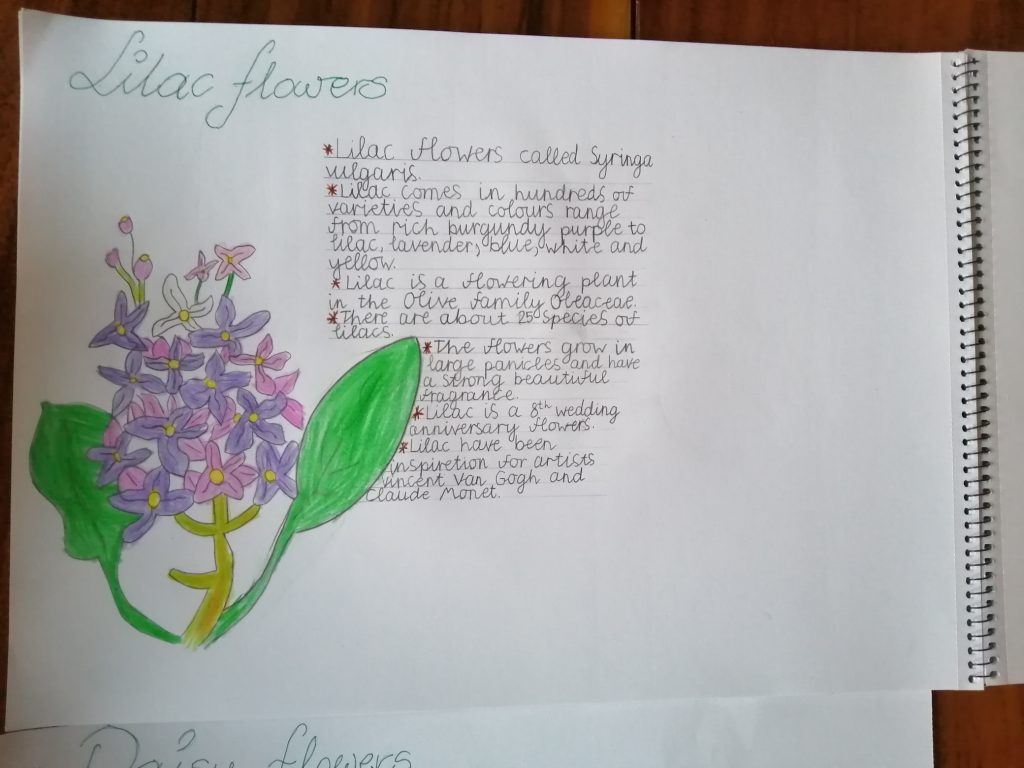 Lilac flowers
*Lilac flowers called Syringa
vulgaris.
*Lilac comes in hundreds of
varieties and colours range
from rich burgundy purple to
lilac, lavender, blue, white and
yellow.
*Lilac is a flowering plant
in the Olive family Oleaceae.
*There are about 25 species of
lilacs.
*The flowers grow in
large panicles and have
a strong beautiful
fragrance.
*Lilac is a 8th wedding
anniversary flowers.
*Lilac have been
inspiretion for artists
Vincent Van Gogh and
Claude Monet.
Daisy flowers